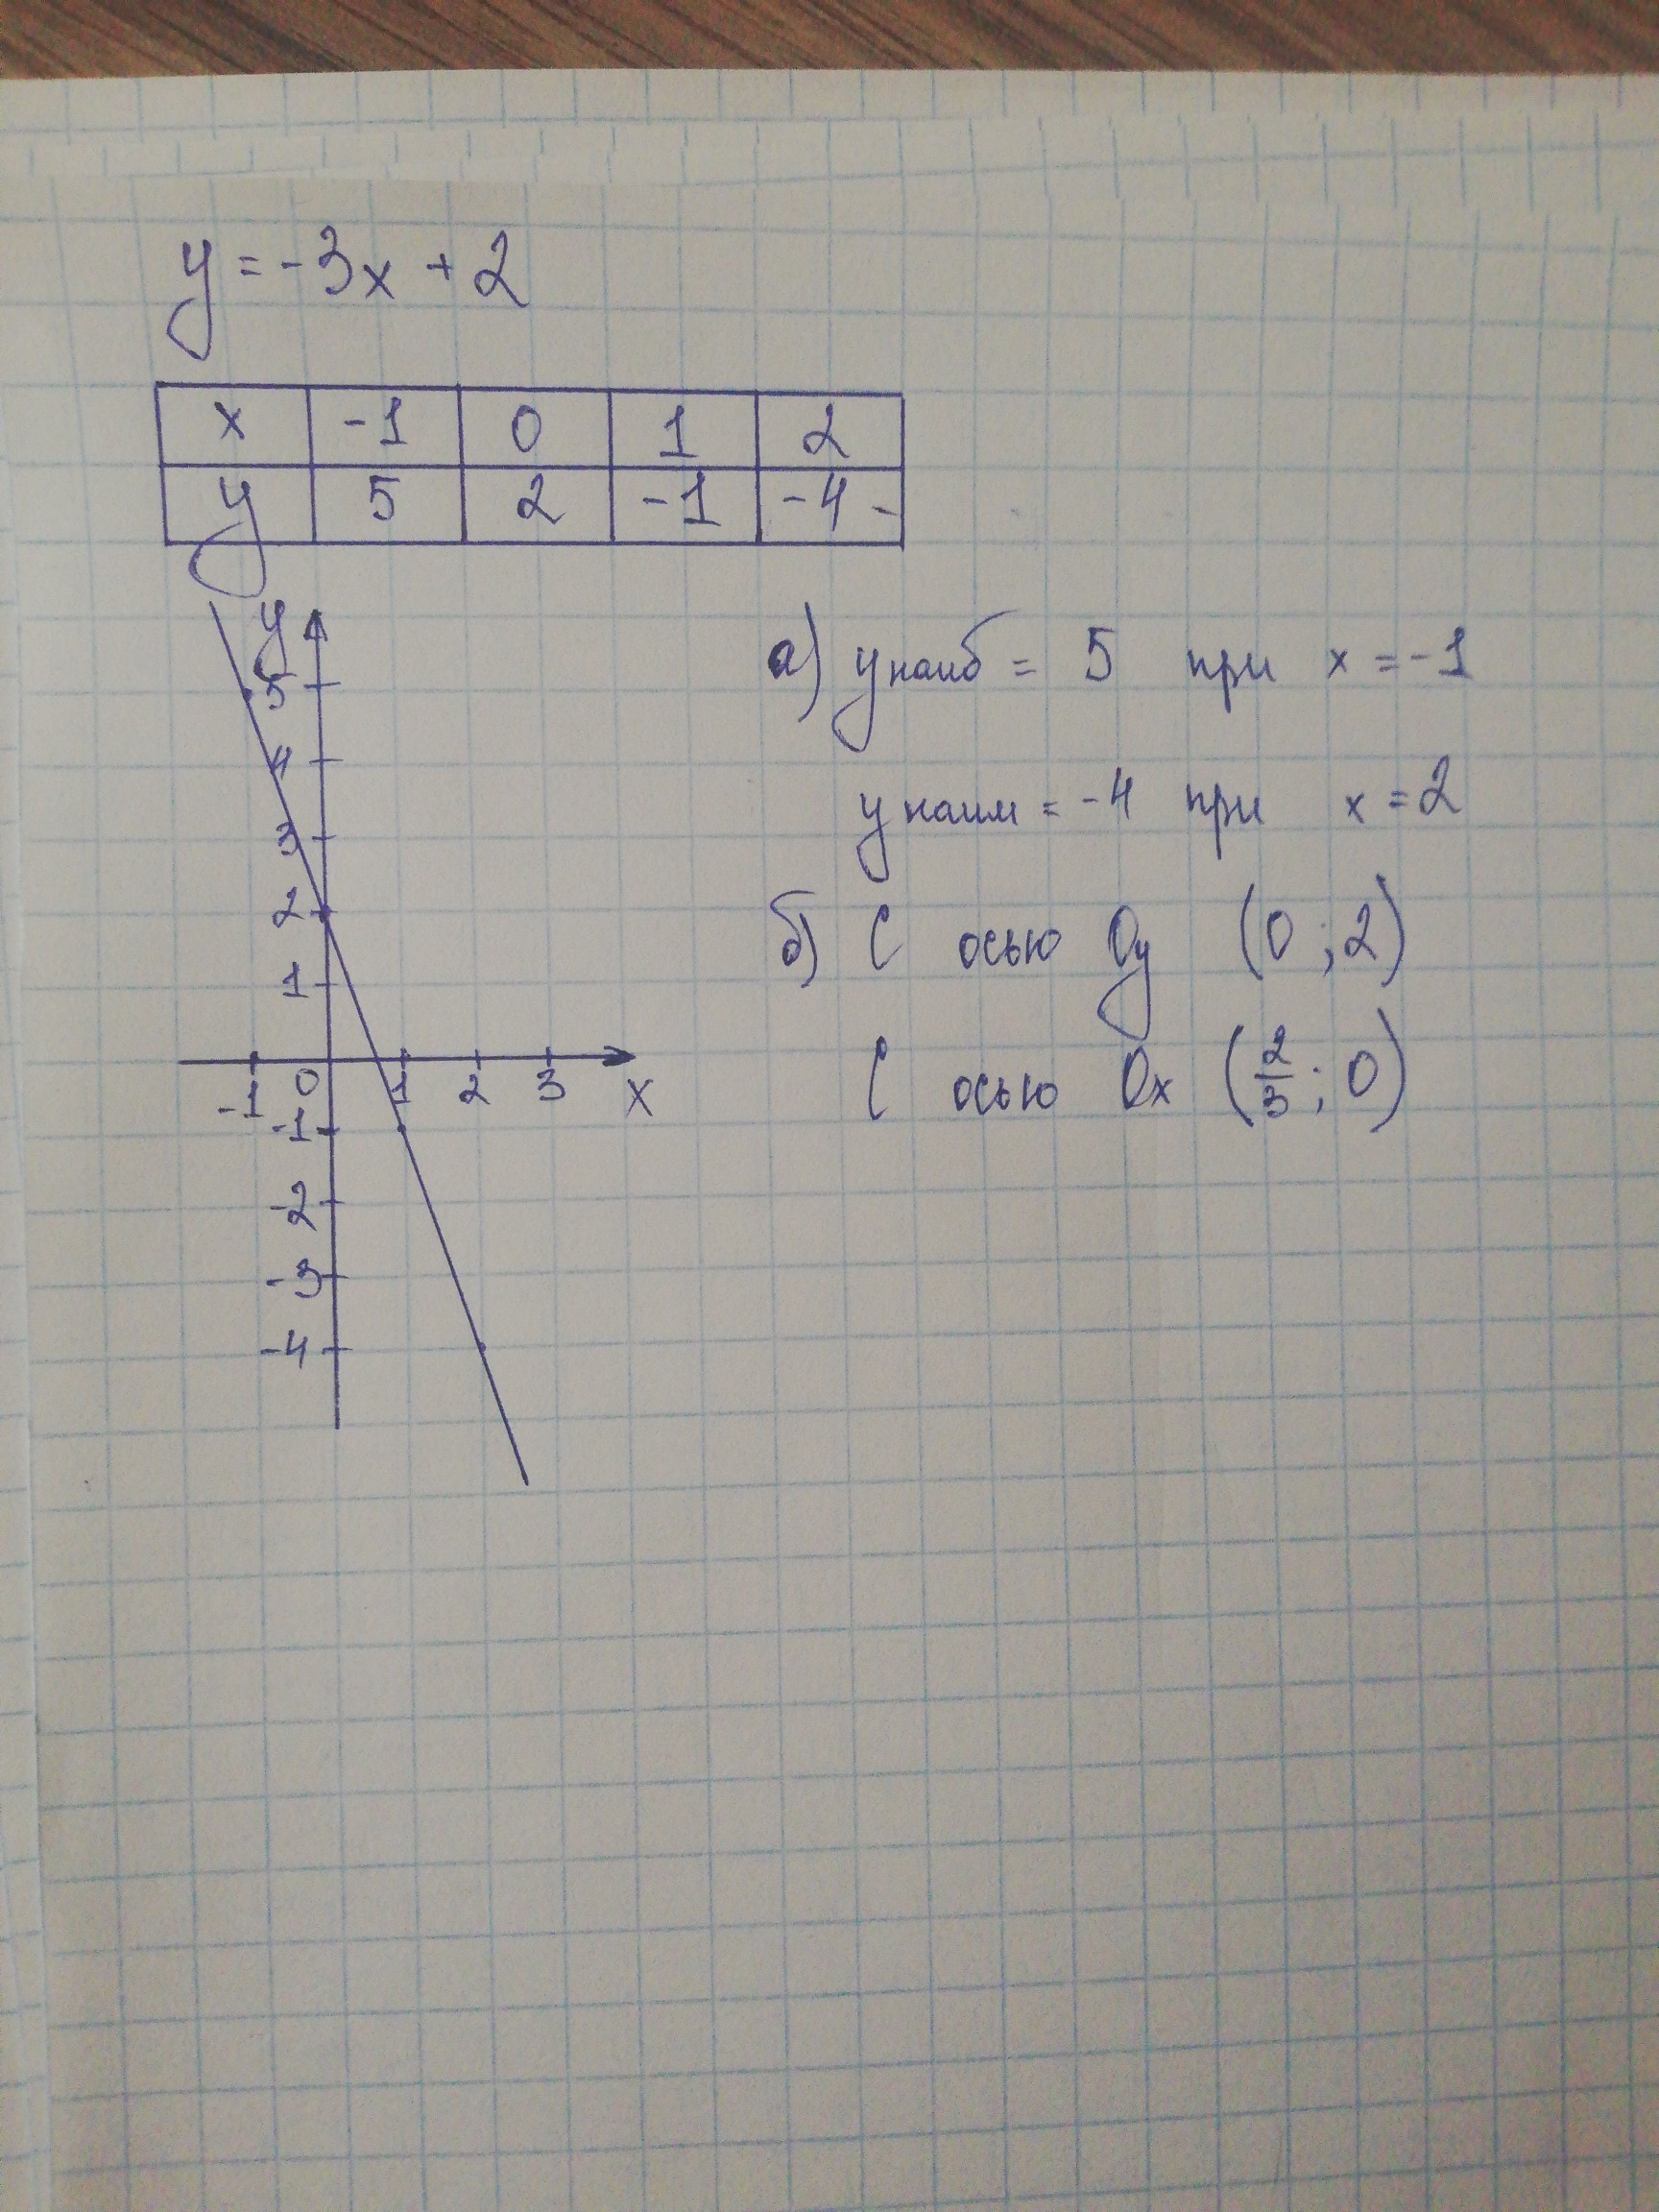 y = -3x + 2
x -1 0 1 2
y 5 2 -1 -4
y
5
4
3
2
1
-1 0 1 2 3 x
-1
-2
-3
-4
а) y наиб = 5 при x = -1
y наим = -4 при x = 2
б) С осью Oy (0 ; 2)
С осью Ox (2/3 ; 0)